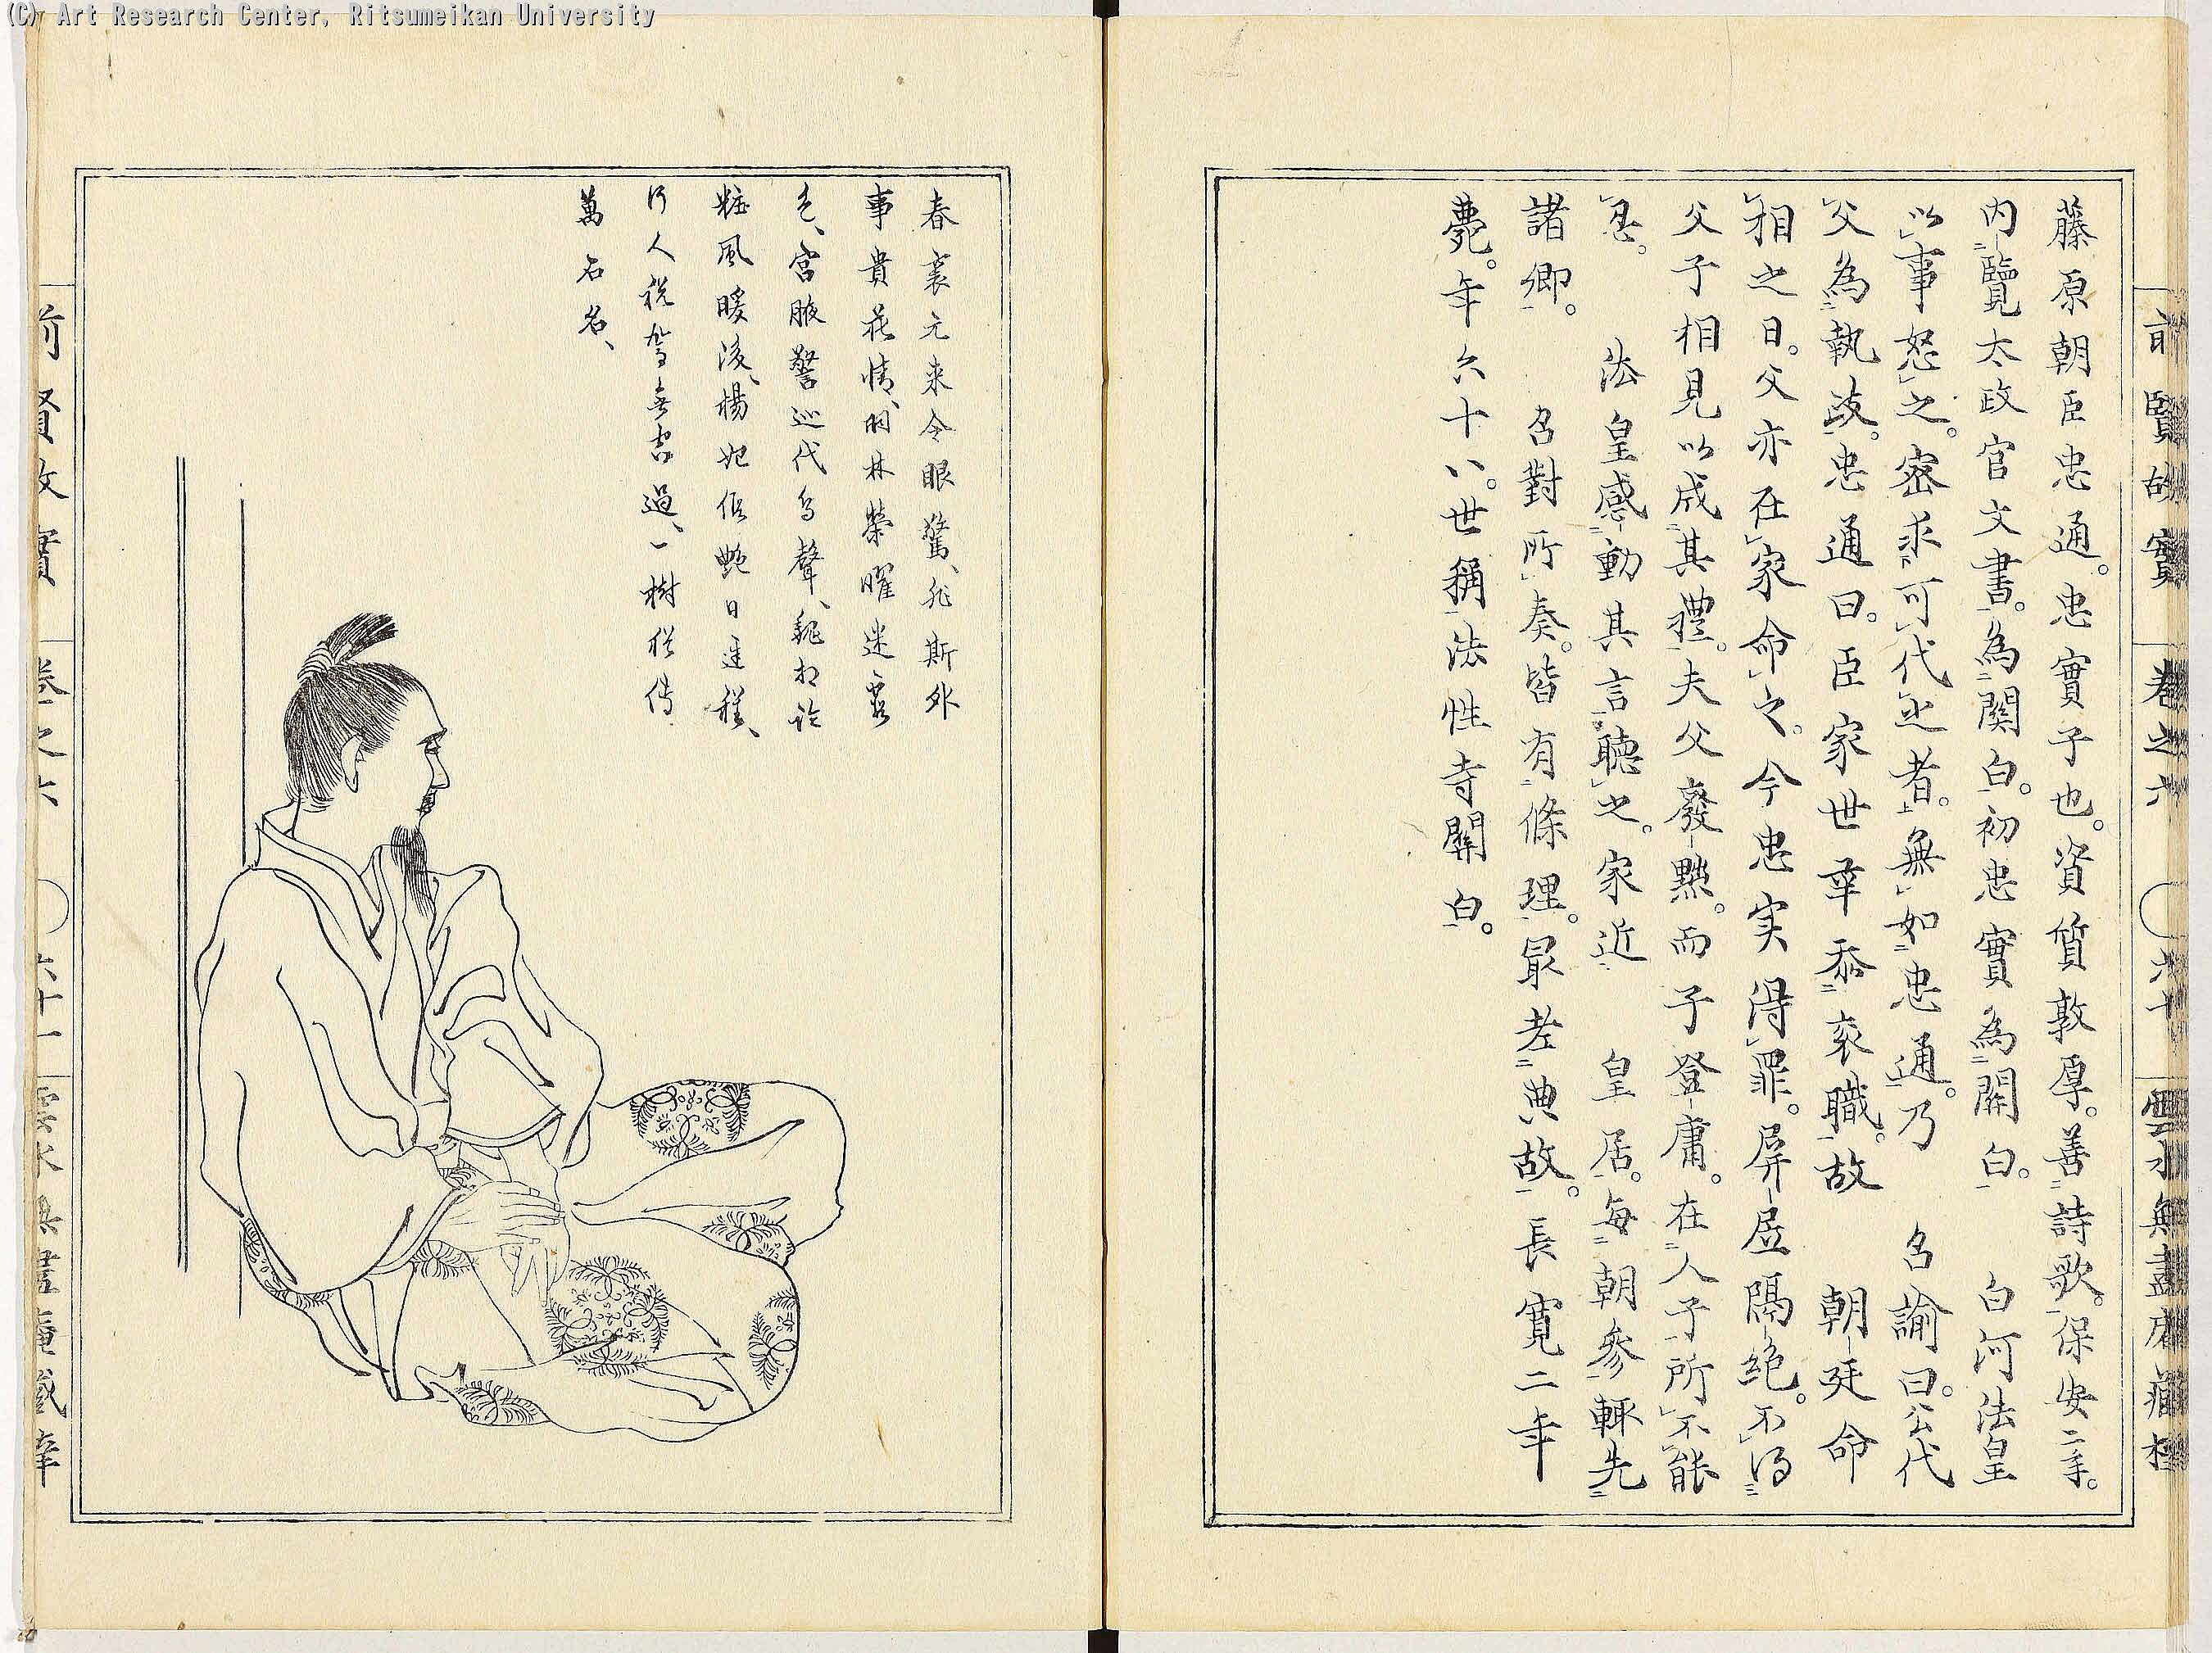 (C) Art Research Center, Ritsumeikan University
前賢故實 巻之六 六十
藤原朝臣忠通。忠實子也。資質敦厚。善詩歌。保安二年。
内覽太政官文書。為関白。初忠實為関白。 白河法皇
以事怒之。密求可代之者。無如忠通。乃 召諭曰。公代
父為執政。忠通曰。臣家世辱忝衮職。故 朝廷命
相之日。父亦在家命之。今忠実得罪。屏居隔絶。不得
父子相見以成其禮。夫父廢黙。而子登庸。在人子所不能
忍。 法皇感動其言聴之。家近 皇居。毎朝參輙先
諸卿。 召對所奏。皆有條理。最老典故。長寛二年
薨。年六十八。世稱法性寺関白。
春裏元来令眼驚、非斯外
事貴花情、明林榮曜迷霞
色、宮腋警巡代鳥聲、
粧風暖後、楊妃佰艶日遅程、
行人税駕無言過、一樹
萬石名、
前賢故實 巻之六 六十一